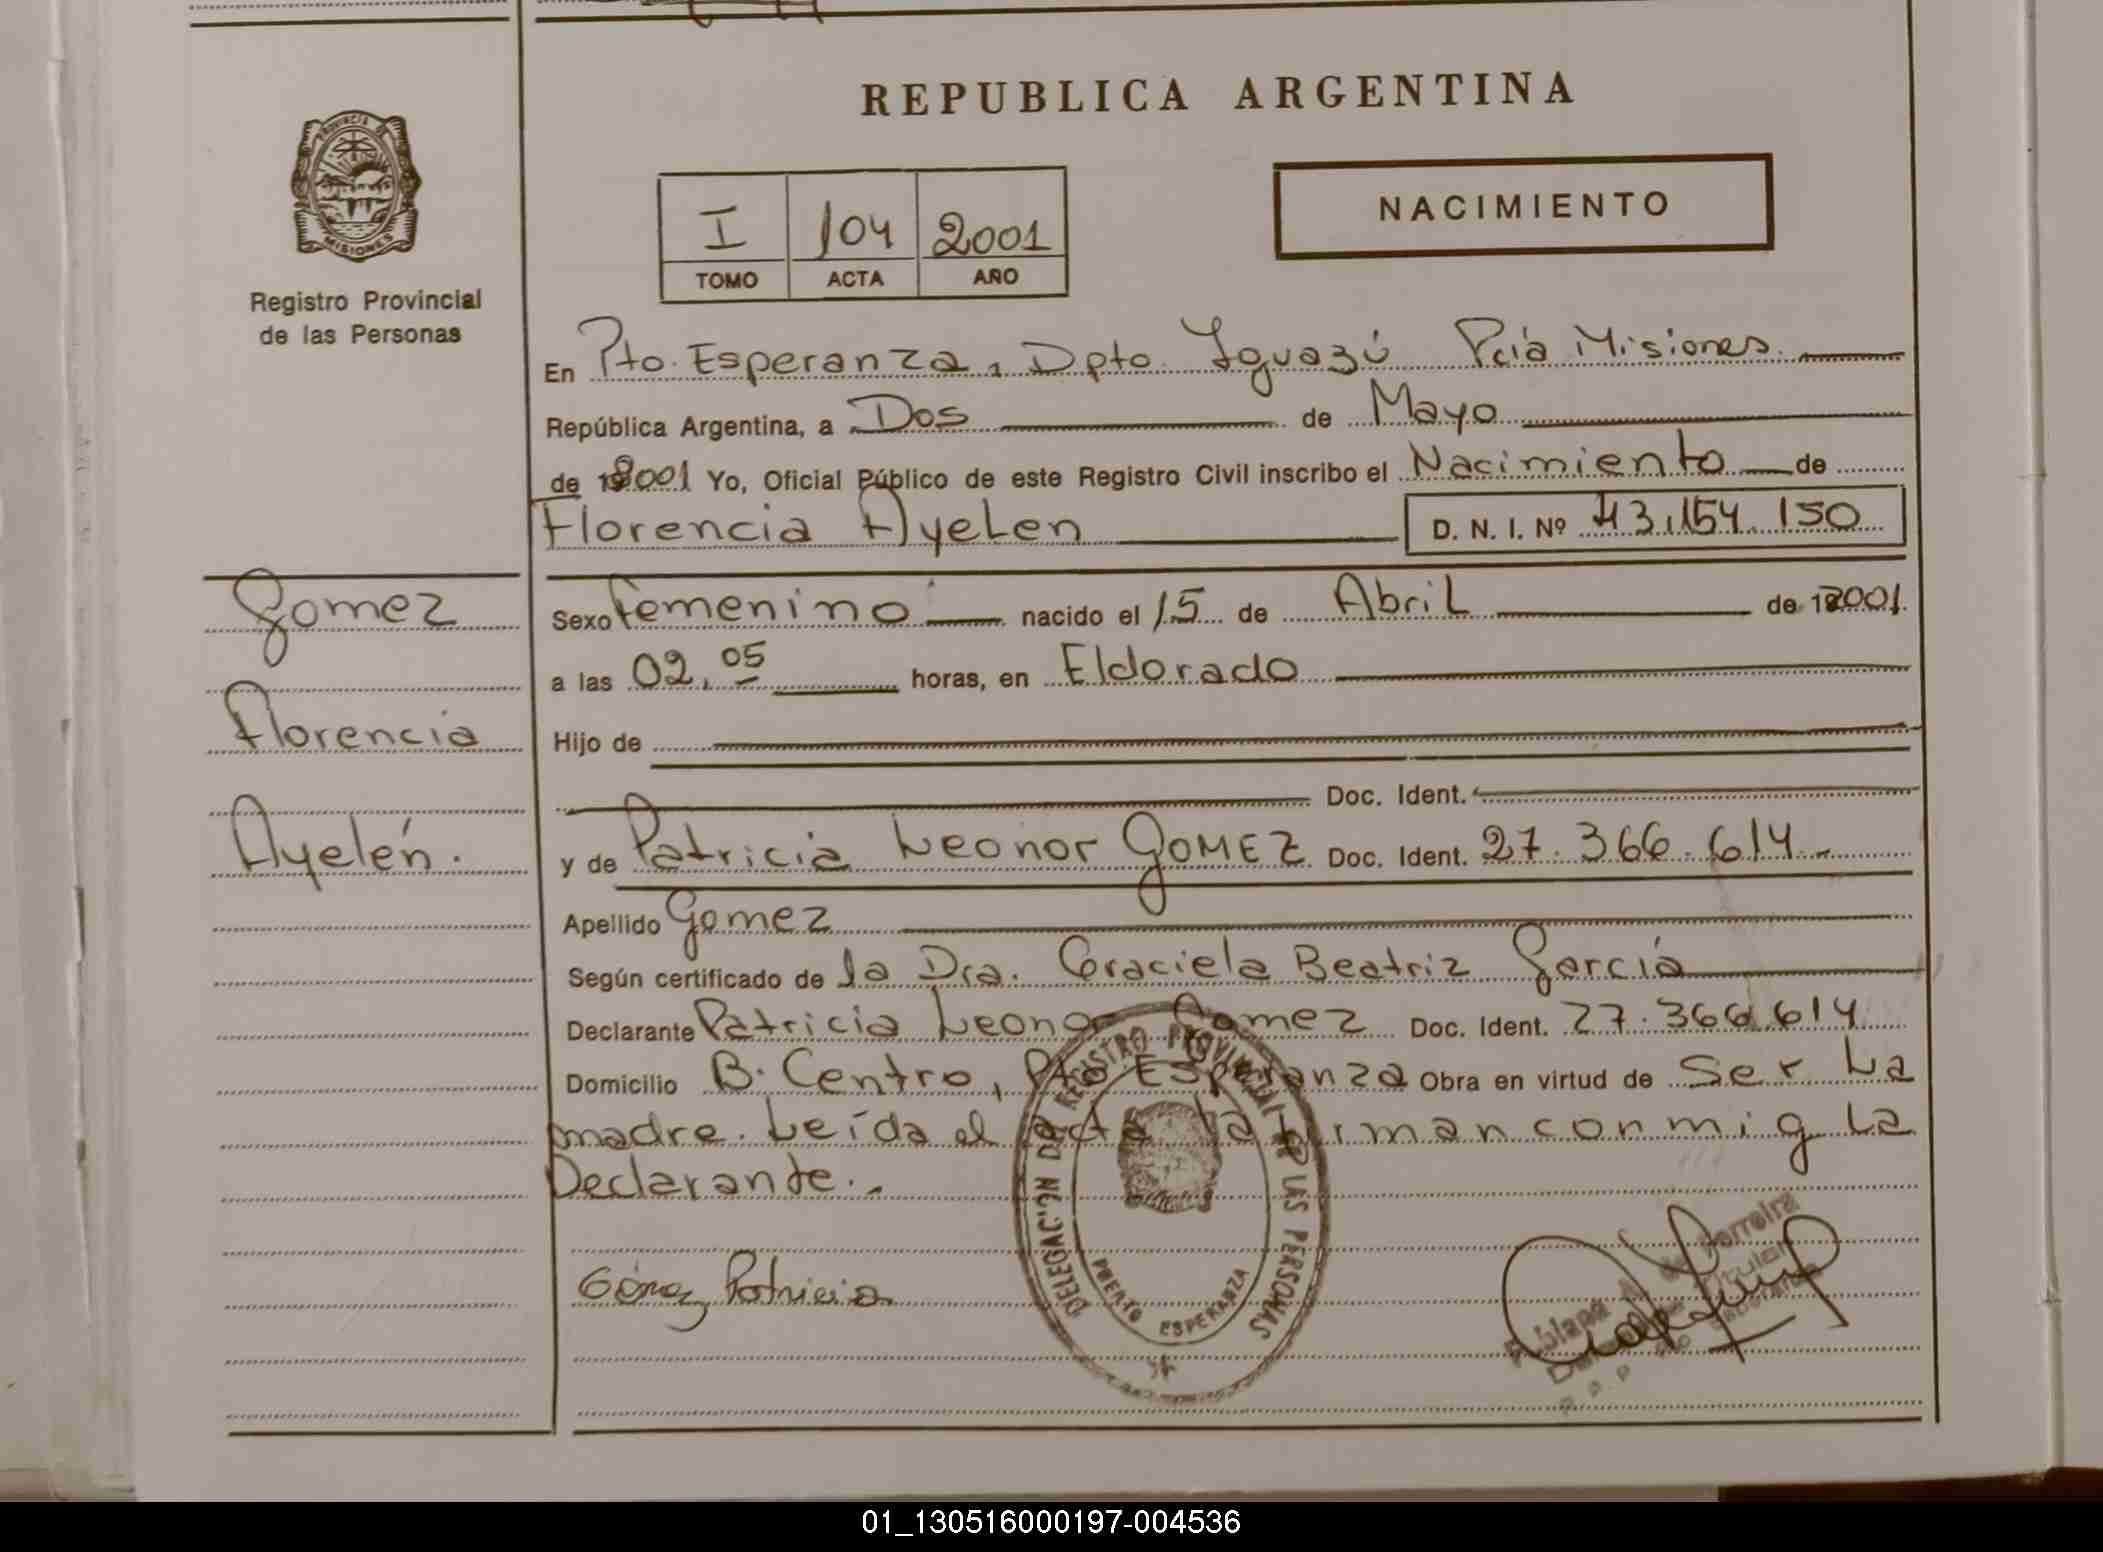 REPUBLICA ARGENTINA
PROVINCIA DE
MISIONES
Registro Provincial
de las Personas
NACIMIENTO
I 104 2001
TOMO ACTA AÑO
En Pto. Esperanza, Dpto. Iguazú Pcia Misiones.
República Argentina, a Dos de Mayo
de 2001 Yo, Oficial Público de este Registro Civil inscribo el Nacimiento de
Florencia Ayelen D. N. I. Nº 43.154.150
Gomez
Florencia
Ayelén.
Sexo Femenino nacido el 15 de Abril de 2001.
a las 02,05 horas, en Eldorado
Hijo de
Doc. Ident.
y de Patricia Leonor GOMEZ Doc. Ident. 27.366.614.-
Apellido Gomez
Según certificado de la Dra. Graciela Beatriz García
Declarante Patricia Leonor Gomez Doc. Ident. 27.366.614
Domicilio B. Centro, Pto Esperanza Obra en virtud de Ser La
madre. Leída el acta la firman conmig La
Declarante..
DELEGACION DEL REGISTRO PROVINCIAL DE LAS PERSONAS
PUERTO ESPERANZA
Gómez Patricia
de Ferreira
Titular
01_130516000197-004536